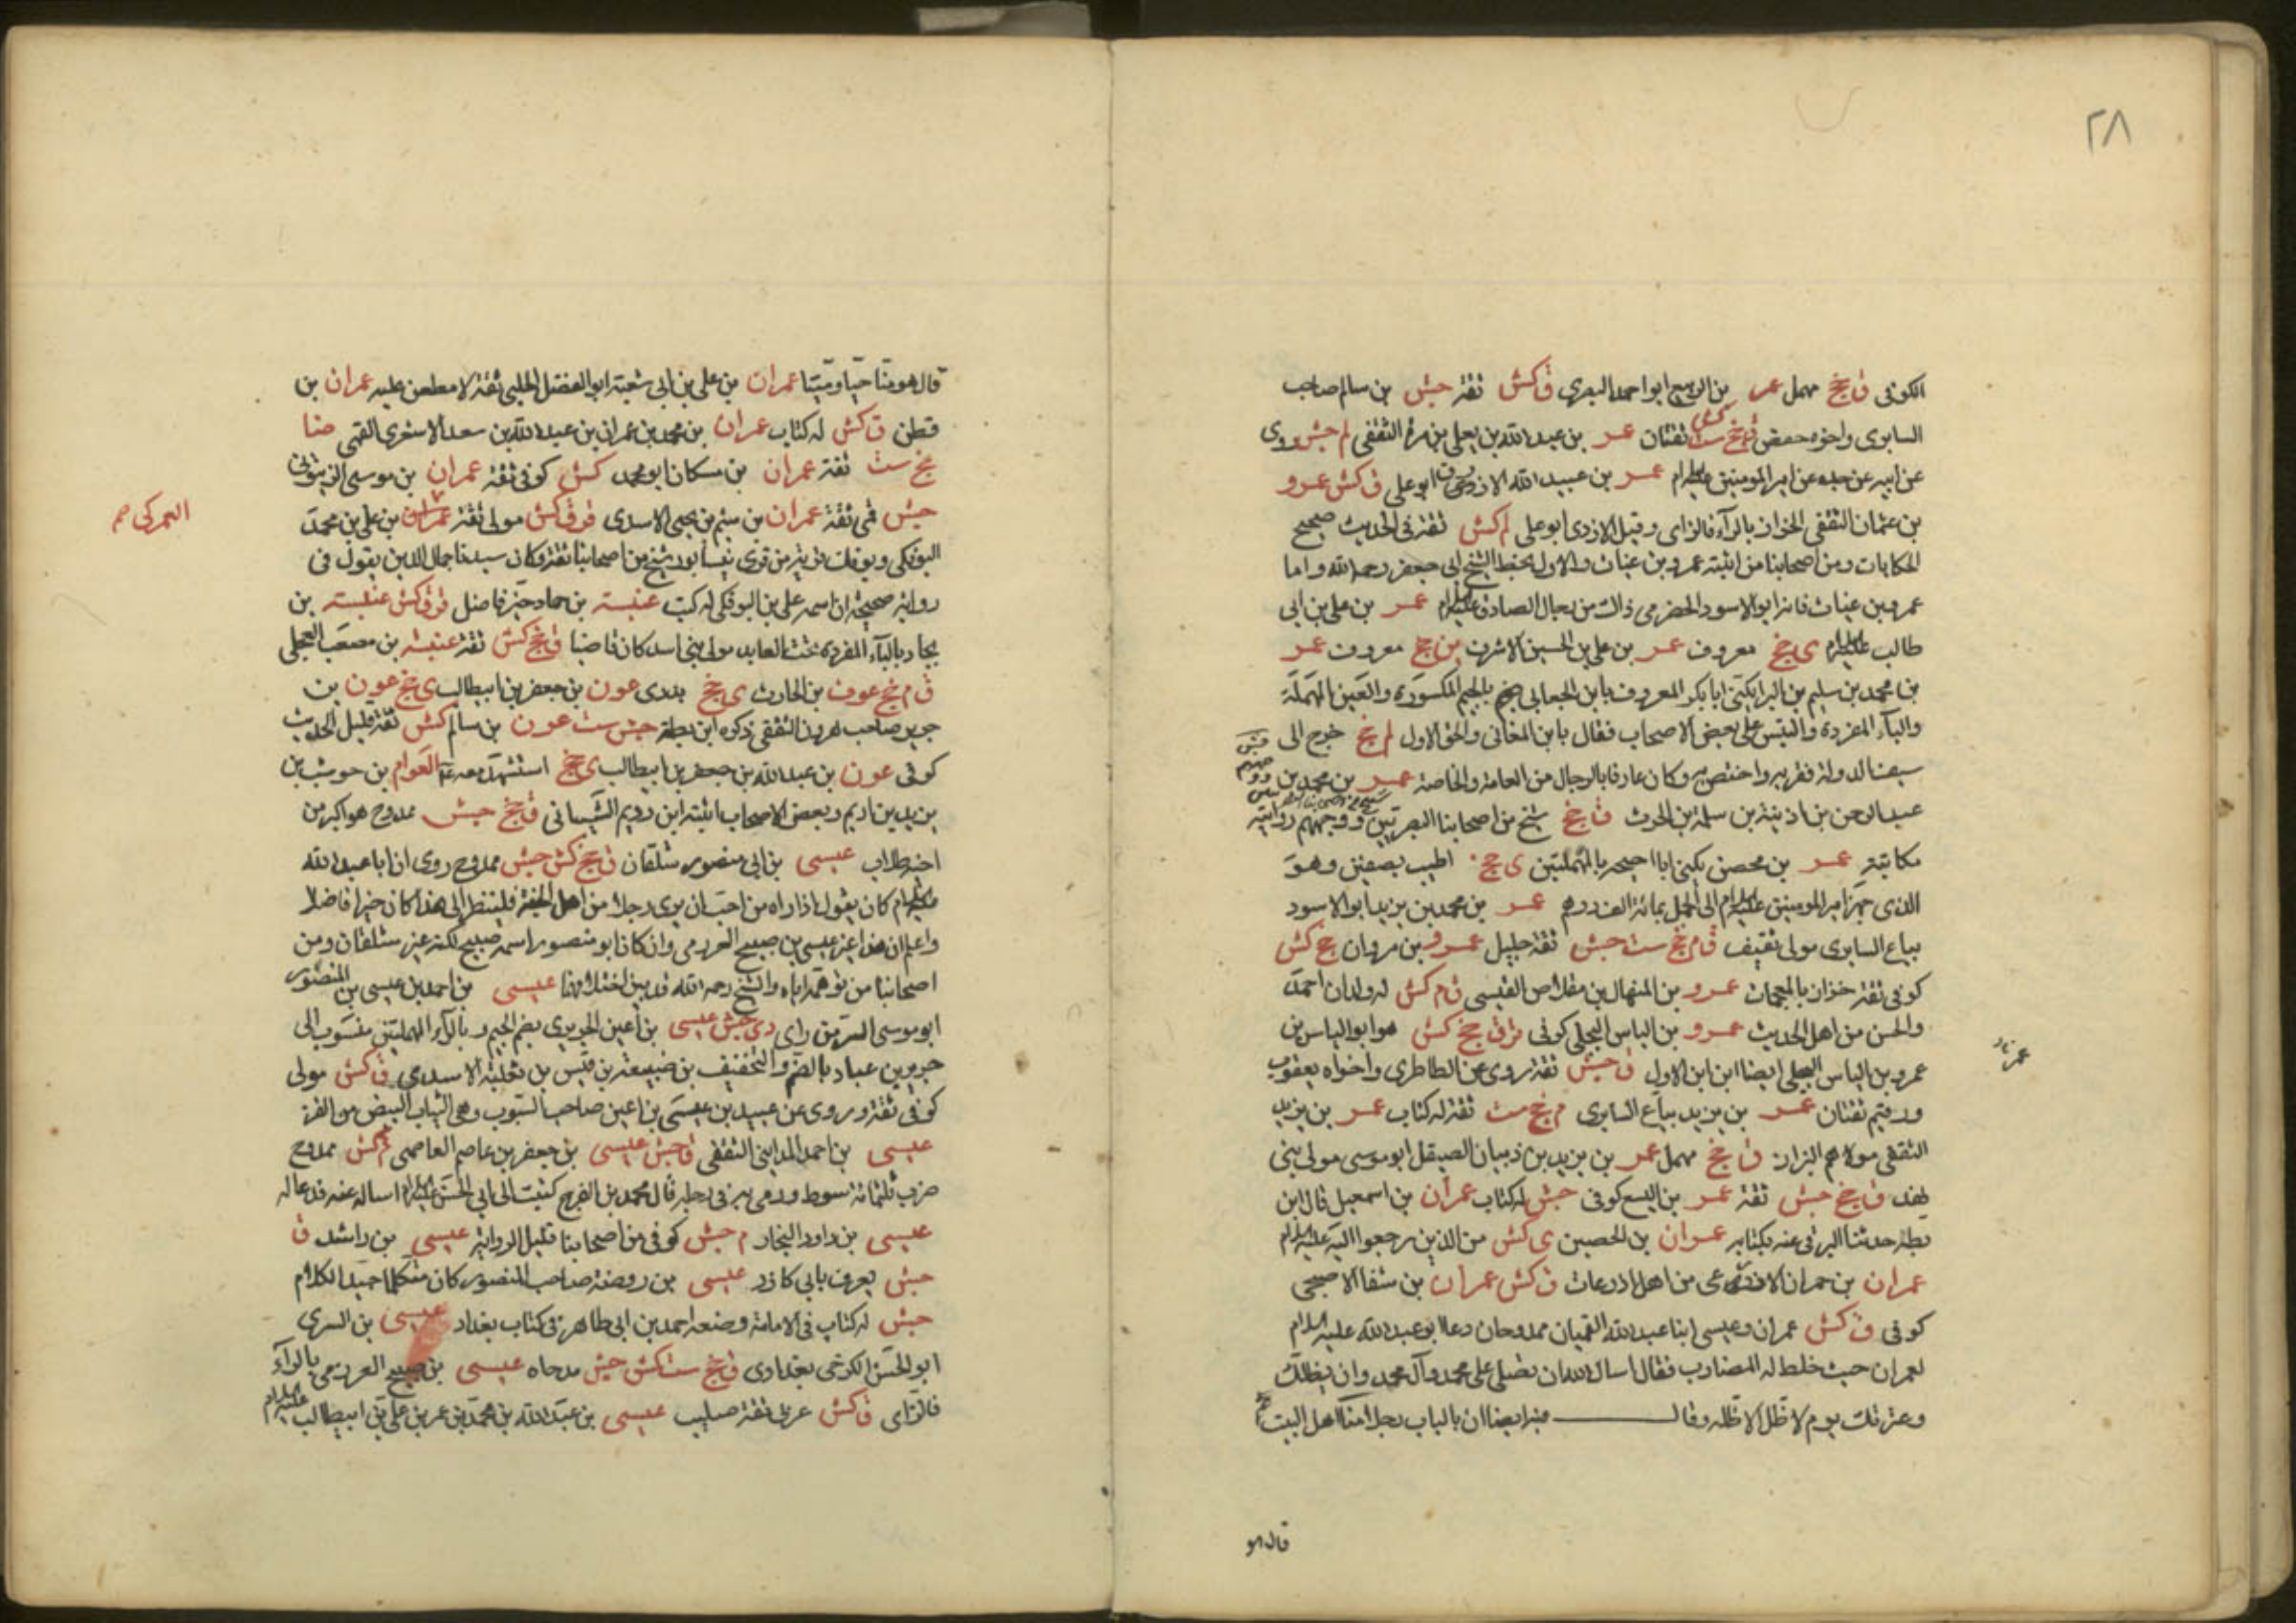 ٢٨
الكوفى ق جخ مهمل عمر بن الربيع ابو احمد البصرى ق كش ثقة جش بن سالم صاحب
السابرى واخوه حفص ق جخ ست كش ثقتان عمر بن عبد الله بن يعلى بن مرة الثقفى لم جش روى
عن ابيه عن جده عن امير المومنين عليه السلام عمر بن عبيد الله الازدى ابو على ق كش عمرو
بن عثمان الثقفى الخزاز بالرآء فالزاى وقيل الازدى ابو على لم كش ثقة فى الحديث صحيح
الحكايات ومن اصحابنا من اثبته عمرو بن غياث والاول بخط الشيخ ابى جعفر رحمه الله واما
عمرو بن غياث فانه ابو الاسود الحضرمى ذاك من رجال الصادق عليه السلام عمر بن على بن ابى
طالب عليه السلام ى جخ معروف عمر بن على بن الحسين الاشرف ين جخ معروف عمر
بن محمد بن سليم بن البرا يكنى ابا بكر المعروف بابن الجعابى بالجيم المكسورة والعين المهملة
والبآء المفردة والتبس على بعض الاصحاب فقال بابن المغانى والحق الاول لم جخ خرج الى
سيف الدولة فقربه واختص به وكان عارفا بالرجال من العامة والخاصة عمر بن محمد بن
عبد الرحمن بن اذينة بن سلمة بن الحرث ق جخ شيخ من اصحابنا البصريين ووجههم روايته
مكاتبة عمر بن محصن يكنى ابا احيحه بالمهملتين ى جخ اطيب بصفين وهو
الذى جهز امير المومنين عليه السلام الى الجمل بمائة الف درهم عمر بن محمد بن يزيد ابو الاسود
بياع السابرى مولى ثقيف ق م جخ ست جش ثقة جليل عمرو بن مروان جخ كش
كوفى ثقة خزاز بالمعجمات عمرو بن المنهال بن مقلاص القيسى ق م كش له ولدان احمد
والحسن من اهل الحديث عمرو بن الياس البجلى كوفى قر ق جخ كش هو ابو الياس بن
عمرو بن الياس البجلى ايضا ابن ابن الاول ق جش ثقة روى عن الطاطرى واخواه يعقوب
ورقيم ثقتان عمر بن يزيد بياع السابرى م جخ ست ثقة له كتاب عمر بن يزيد
الثقفى مولاهم البزاز ق جخ مهمل عمر بن يزيد بن ذبيان الصيقل ابو موسى مولى بنى
نهد ق جخ جش ثقة عمر بن اليسع كوفى جش له كتاب عمران بن اسمعيل قال ابن
بطة حدثنا البرقى عنه بكتابه عمران بن الحصين ى كش من الذين رجعوا اليه عليه السلام
عمران بن حمران الاذرعى من اهل اذرعات ق كش عمران بن شفا الاصبحى
كوفى ق كش عمران وعيسى ابنا عبد الله القميان ممدوحان دعا ابو عبد الله عليه السلام
لعمران حيث خلط له المضارب فقال اسال الله ان يصلى على محمد وآل محمد وان يظلك
وعترتك يوم لا ظل الا ظله وقال فيه ايضا ان بالباب رجلا منا اهل البيت
قال هو
قال هو منا حيا وميتا عمران بن على بن ابى شعبة ابو الفضل الحلبى ثقة لا مطعن عليه عمران بن
قطن ق كش له كتاب عمران بن محمد بن عمران بن عبد الله بن سعد الاشعرى القمى ضا
جخ ست ثقة عمران بن مسكان ابو محمد كش كوفى ثقة عمران بن موسى الزيتونى
جش قمى ثقة عمران بن ميثم بن يحيى الاسدى قر ق كش مولى ثقة بن على بن محمد
العمركى
البوفكى وبوفك قرية من قرى نيسابور شيخ من اصحابنا ثقة وكان سيدنا جمال الدين يقول فى
رواية صحيحة ان اسمه على بن البوفكى له كتب عنبسة بن حماد خير فاضل قر ق كش عنبسة بن
بجاد بالبآء المفردة تحت العابد مولى بنى اسد كان قاضيا ق جخ كش ثقة عنبسة بن مصعب العجلى
ق م جخ عوف بن الحارث ى جخ بدرى عون بن جعفر بن ابيطالب ى جخ عون بن
جرير صاحب هرون الثقفى ذكره ابن بطة جش ست عون بن سالم كش ثقة قليل الحديث
كوفى عون بن عبد الله بن جعفر بن ابيطالب ى جخ استشهد معه العوام بن حوشب بن
يزيد بن اديم وبعض الاصحاب اثبته ابن رويم الشيبانى ق جخ جش ممدوح هو اكبر من
عيسى بن ابى منصور شلقان ق جخ كش جش ممدوح روى ان ابا عبد الله
عليه السلام كان يقول اذا راه من احب ان يرى رجلا من اهل الجنة فلينظر الى هذا كان خيرا فاضلا
واعلم ان هذا غير عيسى بن صبيح العرزمى وان كان ابو منصور اسمه صبيح لكنه غير شلقان ومن
اصحابنا من توهمه اياه والشيخ رحمه الله قد بين اختلافهما عيسى بن احمد بن عيسى بن المنصور
ابو موسى السر من راى دى جش عيسى بن اعين الجريرى بضم الجيم وبالرآء المهملتين منسوب الى
جرير بن عباد بالضم والتخفيف بن ضبيعة بن قيس بن ثعلبة الاسدى ق كش مولى
كوفى ثقة وروى عن عبيد بن عيسى بن اعين صاحب السبوب وهى الثياب البيض من القز
عيسى بن احمد المداينى الثقفى ق جش عيسى بن جعفر بن عاصم العاصمى لم كش ممدوح
ضرب ثلثمائة سوط ورمى به فى دجلة قال محمد بن الفرج كتبت الى ابى الحسن عليه السلام اساله عنه فدعا له
عيسى بن داود النجار م جش كوفى من اصحابنا قليل الرواية عيسى بن راشد ق
جش يعرف بابى كازر عيسى بن روضة صاحب المنصور كان متكلما جيد الكلام
جش له كتاب فى الامامة وضعه احمد بن ابى طاهر فى كتاب بغداد عيسى بن السرى
ابو الحسن الكرخى بغدادى ق جخ ست كش جش مدحاه عيسى بن صبيح العرزمى بالرآء
فالزاى ق كش عربى ثقة صليب عيسى بن عبد الله بن محمد بن عمر بن على بن ابيطالب عليه السلام